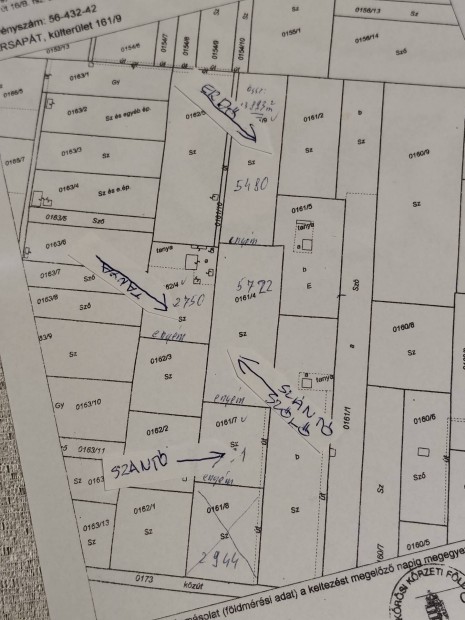 56-432-42
külterület 161/9
0156/13
0154/6
0154/8
0154/9
0154/10
0155/1
0156/14
Sző
0163/1
Gy
0163/2
Sz és egyéb ép.
0163/3
Sz
0163/4
Sz és e.ép.
0163/5
Sző
0163/6
0163/7
Sző
0163/8
Sző
Sz
Gy
0163/10
0163/11
Sz
0163/13
Sz
ERDŐ
Sz
0161/2
Sz
5480
Sz
0160/9
Sz
0161/5
tanya
enyém
tanya
TANYA
62/4
2750
Sz
enyém
5792
0161/4
Sz
E
Sző
0162/3
Sz
0160/8
Sz
enyém
tanya
0161/1
0162/2
0161/7
Sz
út
SZÁNTÓ
enyém
0160/6
Sző
út
0162/1
Sz
0161/8
Sz
2944
út
Sz
0160/5
0173
közút
(földmérési adat) a keltezést megelőző napig
KŐRÖSI KÖRZETI